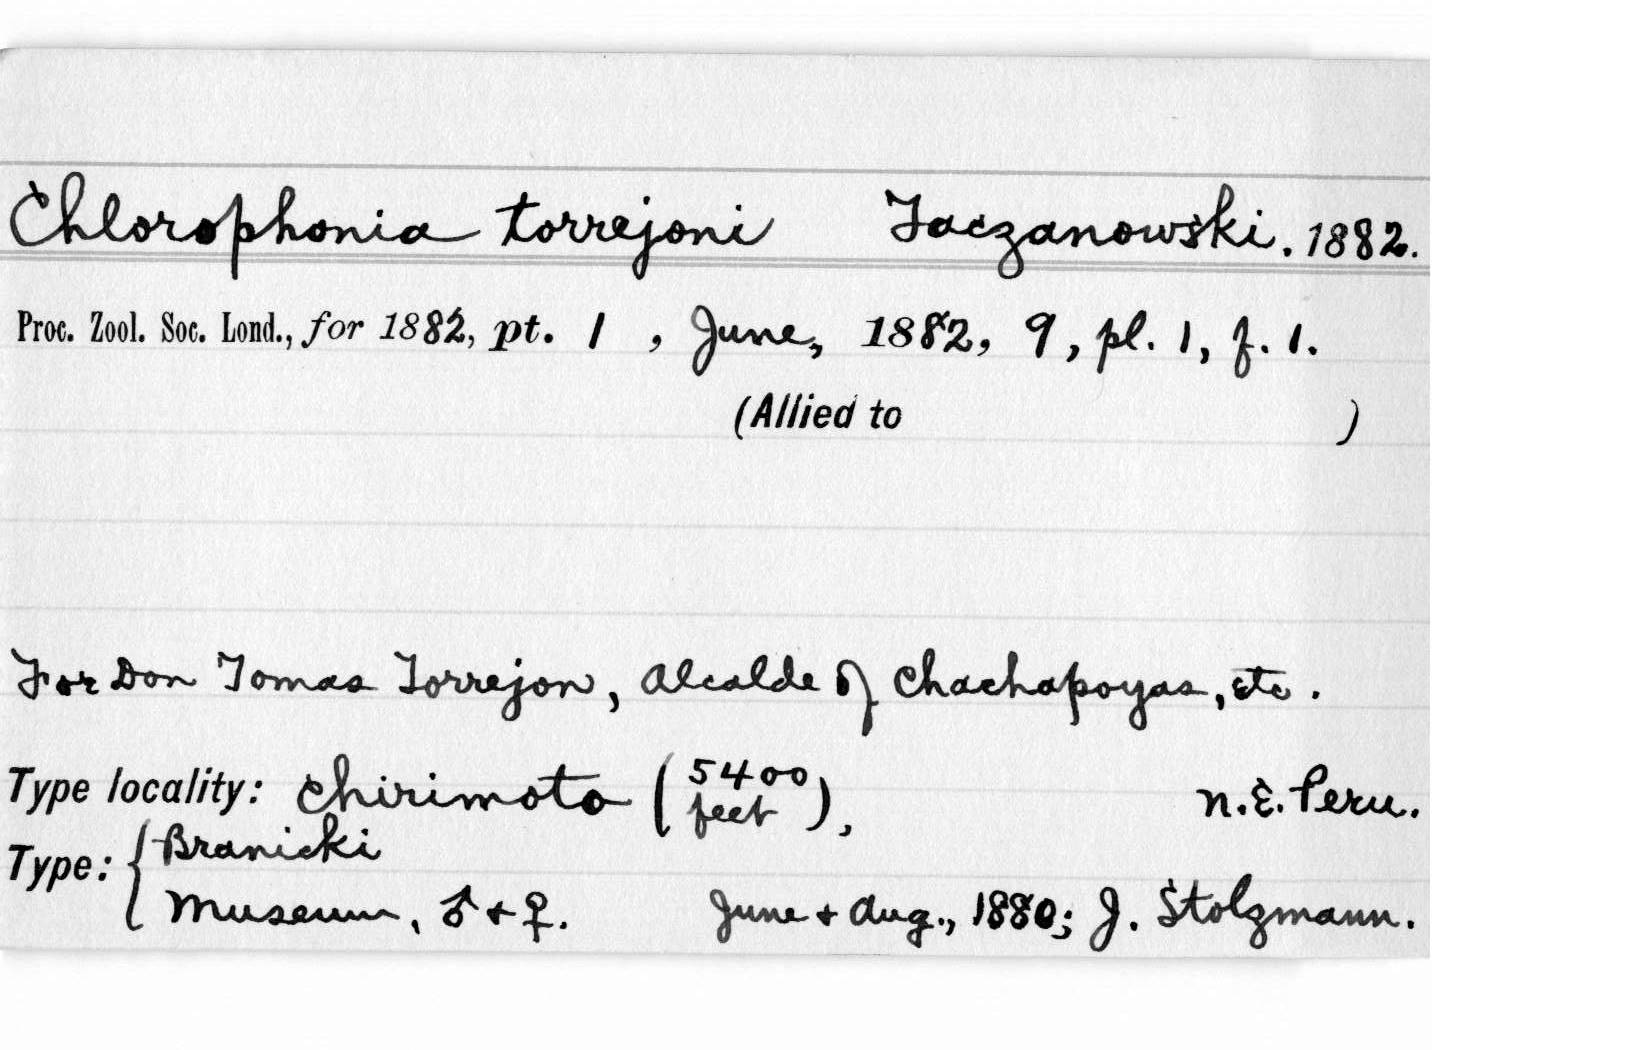 Chlorophonia torrejoni Taczanowski. 1882.
Proc. Zool. Soc. Lond., for 1882, pt. 1, June, 1882, 9, pl. 1, f. 1.
(Allied to )
For Don Tomas Torrejon, Alcalde of Chachapoyas, etc.
Type locality: Chirimoto (5400 feet), N.E. Peru.
Type: { Branicki
Museum, ♂ + ♀. June + Aug., 1880; J. Stolzmann.